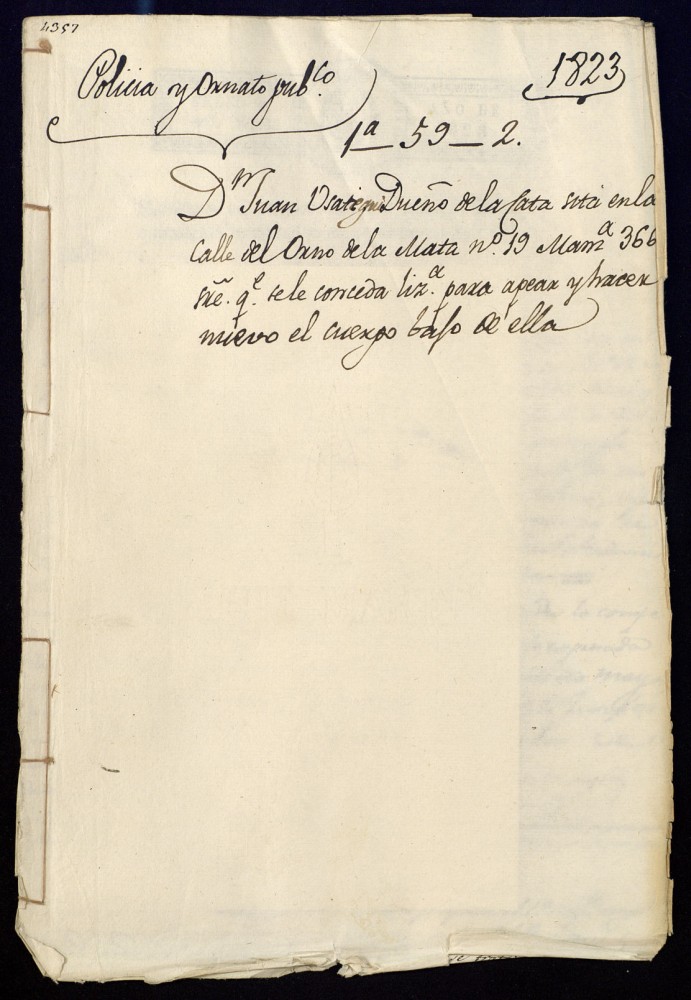 4357
Policia y Ornato pub.co
1823
1a 59 — 2.
Dn Juan Usategui Dueño de la Casa sita en la
Calle del Orno de la Mata no. 19 Manza 366
sre. qe. se le conceda liza. para apear y hacer
nuevo el cuerpo bajo de ella